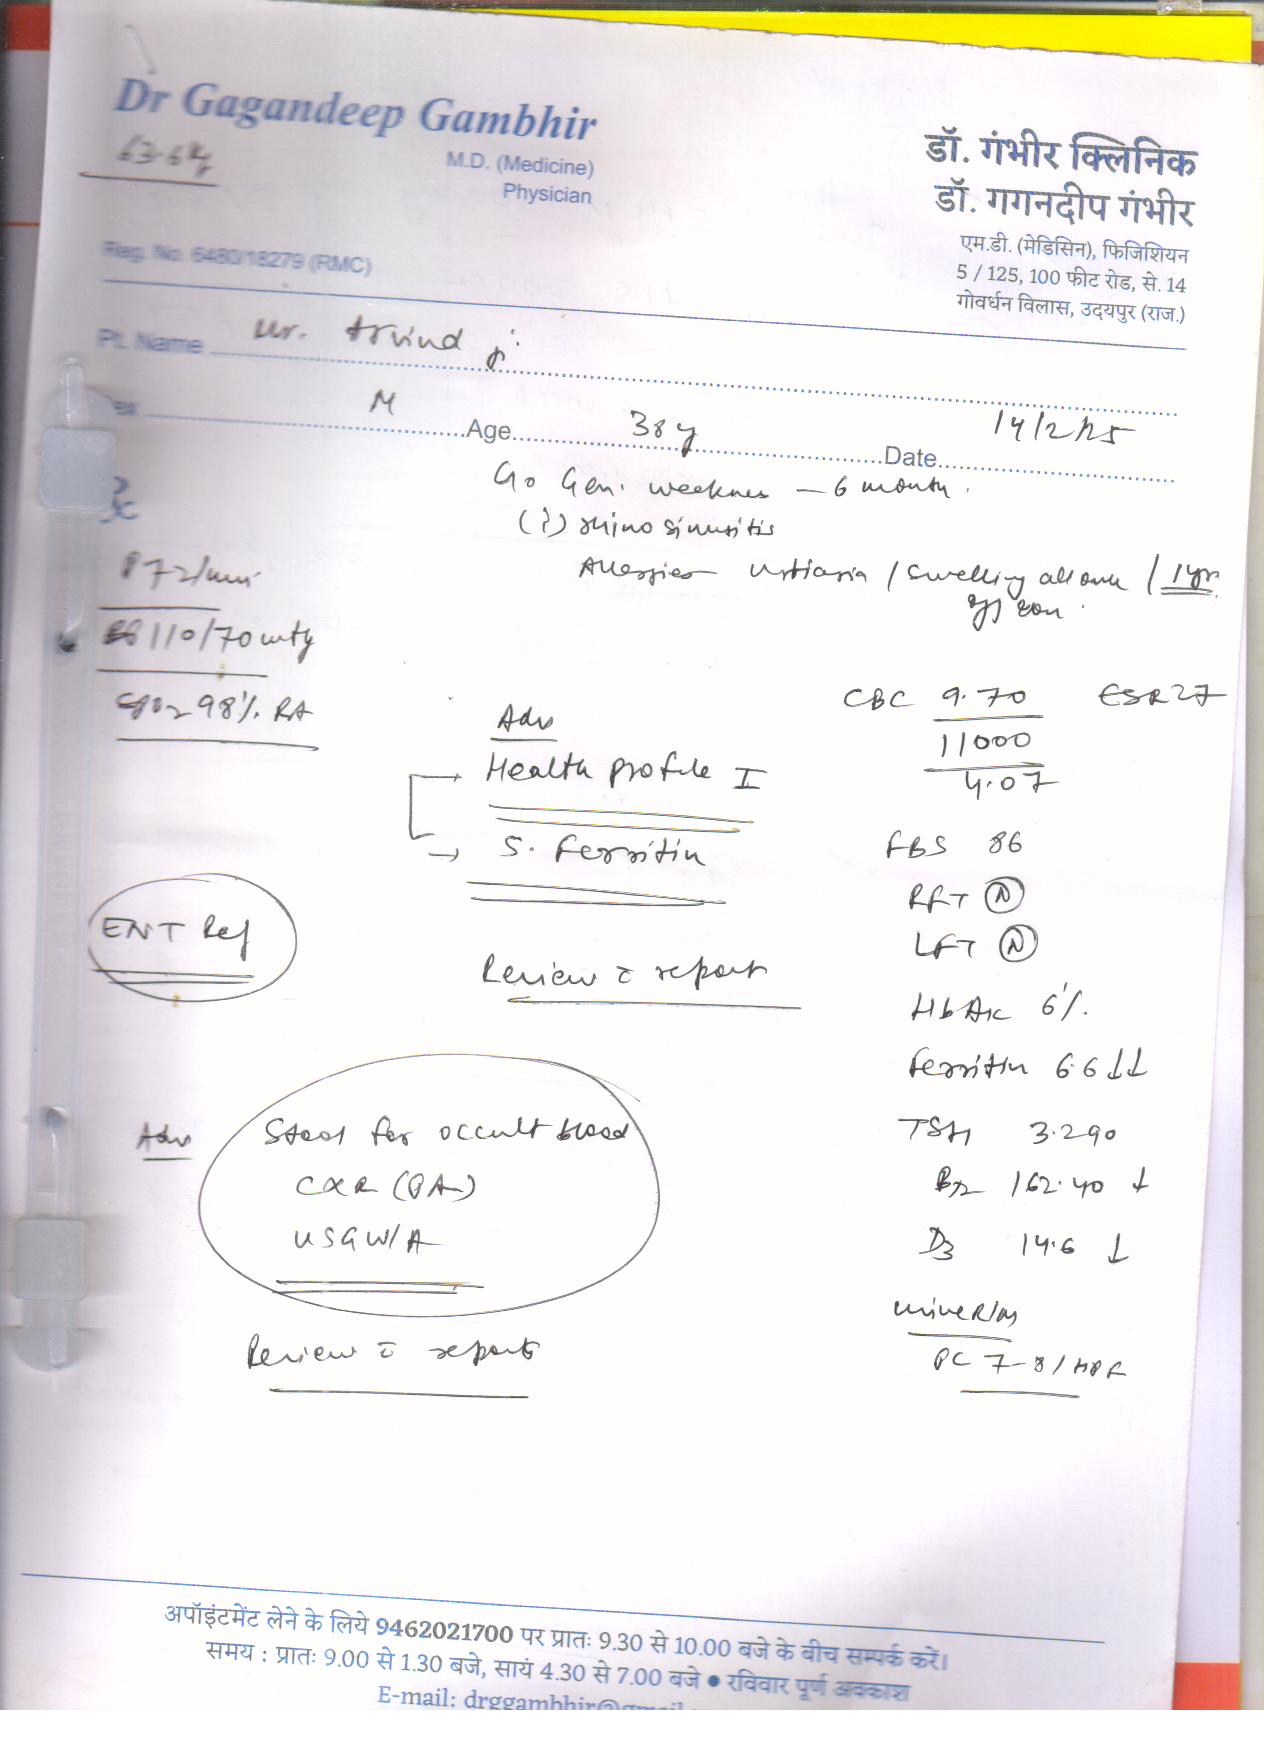 Dr Gagandeep Gambhir
63.6 kg
M.D. (Medicine)
Physician
Reg. No. 6480/18279 (RMC)
डॉ. गंभीर क्लिनिक
डॉ. गगनदीप गंभीर
एम.डी. (मेडिसिन), फिजिशियन
5 / 125, 100 फीट रोड, से. 14
गोवर्धन विलास, उदयपुर (राज.)
Pt. Name Mr. Arvind ji
Sex M Age 38y Date 14/2/25
C/o Gen. weakness – 6 month.
(?) rhino sinusitis
Allergies urtiaria / swelling all over / 1 yr.
P 72/min
110/70 mmHg
SPO2 98% RA
Adv
Health profile I
S. Ferritin
ENT Ref
Review c̄ report
CBC 9.70 ESR 27
11000
4.07
FBS 86
RFT (N)
LFT (N)
HbA1c 6%
Ferritin 6.6 ↓↓
TSH 3.290
B12 162.40 ↓
D3 14.6 ↓
Urine R/M
PC 7-8/HPF
Adv Stool for occult blood
CXR (PA)
USG W/A
Review c̄ reports
अपॉइंटमेंट लेने के लिये 9462021700 पर प्रातः 9.30 से 10.00 बजे के बीच सम्पर्क करें।
समय : प्रातः 9.00 से 1.30 बजे, सायं 4.30 से 7.00 बजे ● रविवार पूर्ण अवकाश
E-mail: drggambhir@gmail